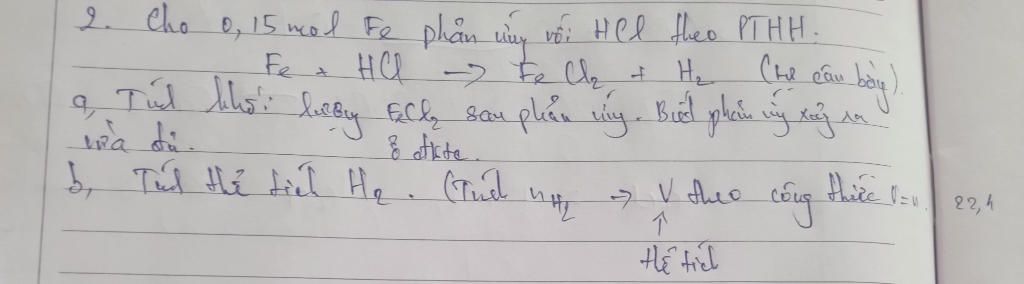 2. Cho 0,15 mol Fe phản ứng với HCl theo PTHH.
Fe + HCl → FeCl2 + H2 (tự cân bằng).
a, Tính khối lượng FeCl2 sau phản ứng. Biết phản ứng xảy ra
vừa đủ.
ở đktc.
b, Tính thể tích H2. (Tính nH2 → V theo công thức V=n. 22,4
↑
thể tích